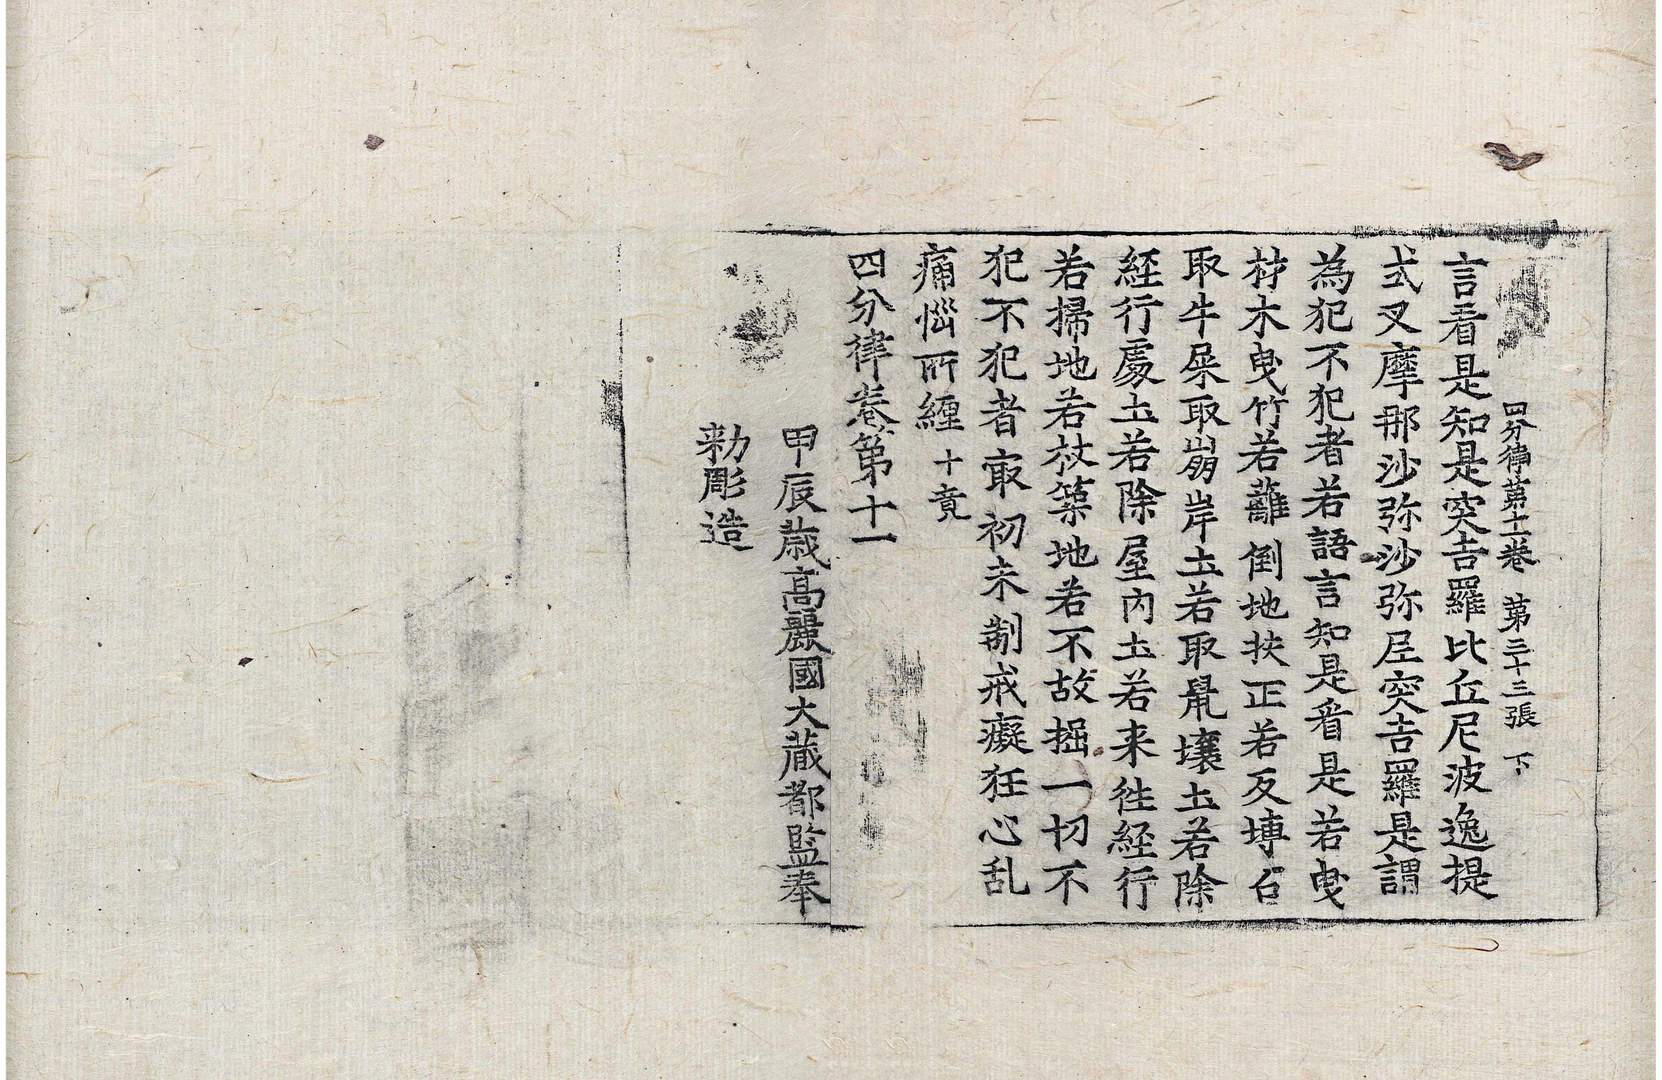 四分律第十一卷　第三十三張　下
言看是知是突吉羅比丘尼波逸提
式叉摩那沙弥沙弥尼突吉羅是謂
為犯不犯者若語言知是看是若曳
材木曳竹若蘺倒地扶正若反塼石
取牛屎取崩岸土若取鼠壤土若除
経行處土若除屋內土若来往経行
若掃地若杖築地若不故掘一切不
犯不犯者㝡初未制戒癡狂心乱
痛惱所纏十竟
四分律卷第十一
甲辰歲高麗國大藏都監奉
勑彫造